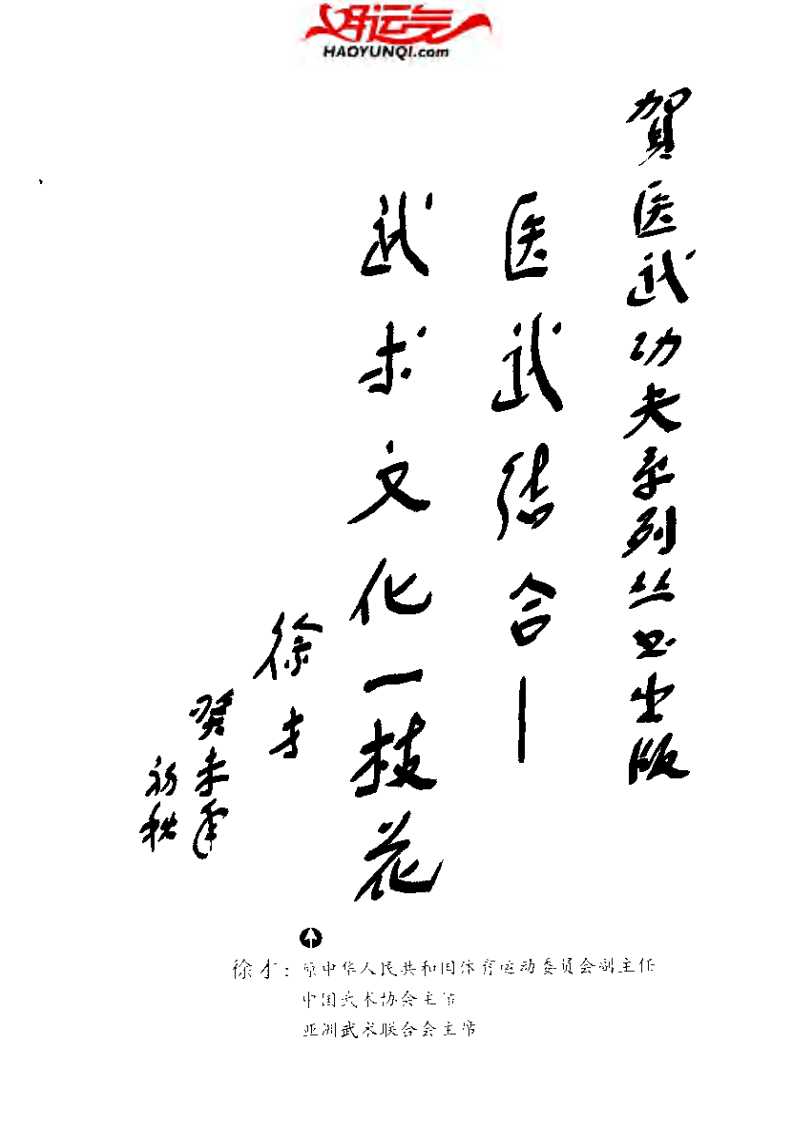 好运气
HAOYUNQI.com
賀医武功夫系列丛书出版
医武结合—
武术文化一枝花
徐才
癸未年
初秋
徐才：原中华人民共和国体育运动委员会副主任
中国武术协会主席
亚洲武术联合会主席